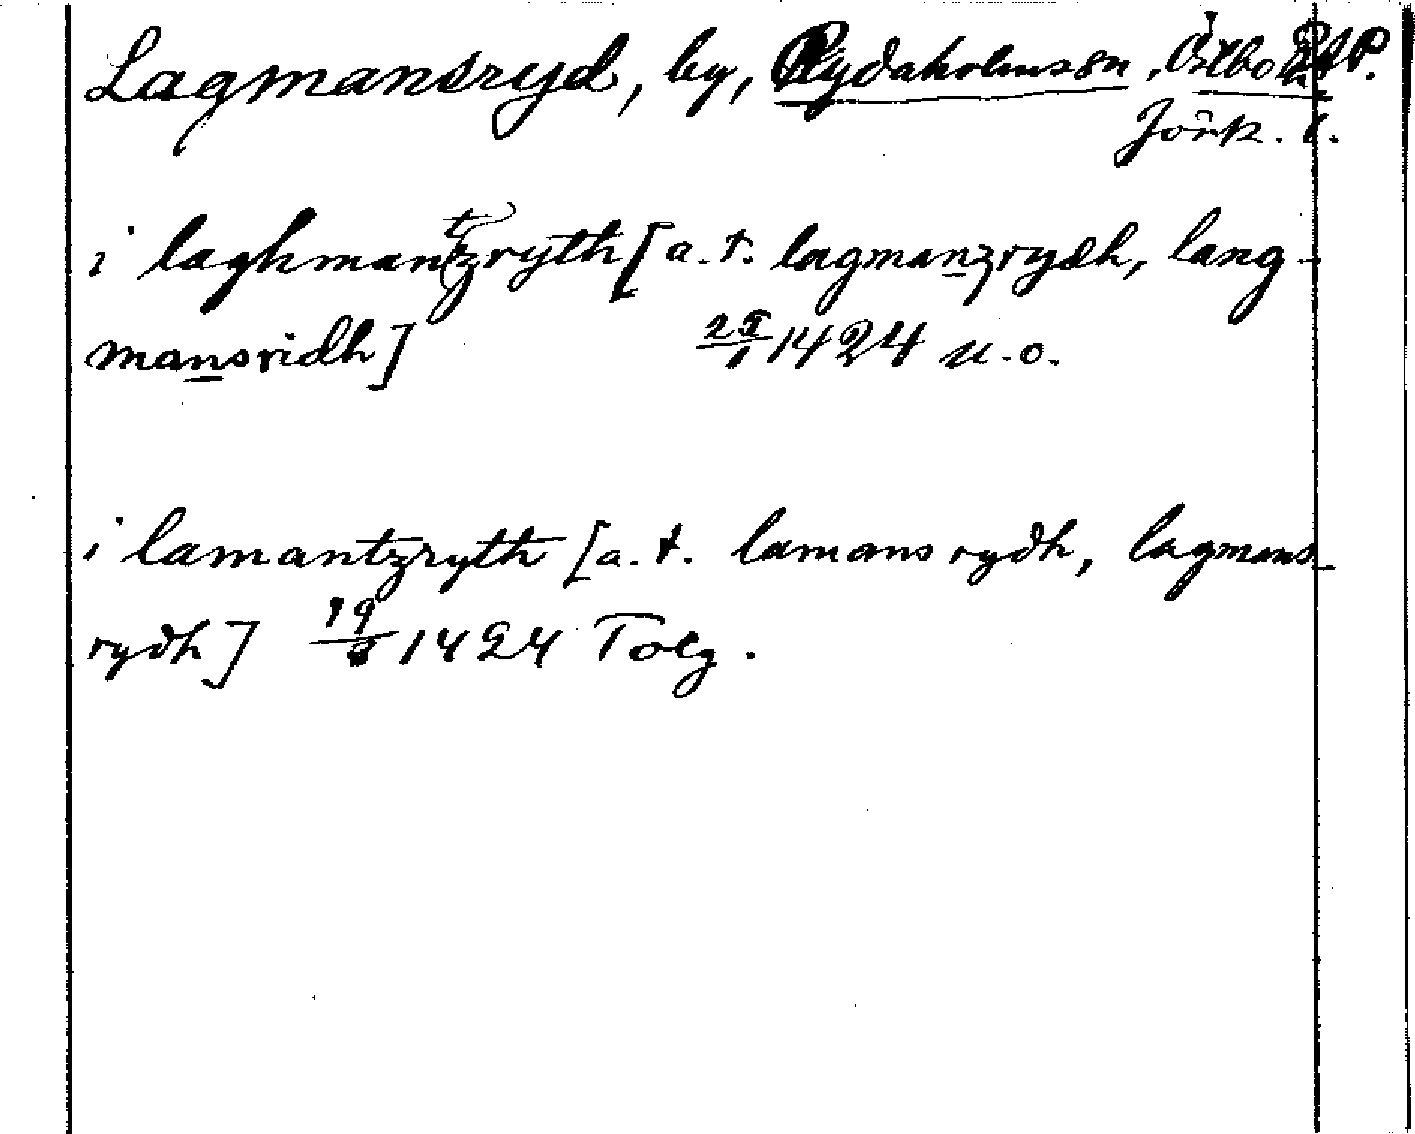 Lagmansryd, by, Rydaholms sn, Östbo hd P.
Jönk. l.
i laghmantzryth [a. t. lagmanzrydh, lang-
mansridh] 25/1 1424 u. o.
i lamantzryth [a. t. lamansrydh, lagmans-
rydh] 19/ 1424 Tolg.